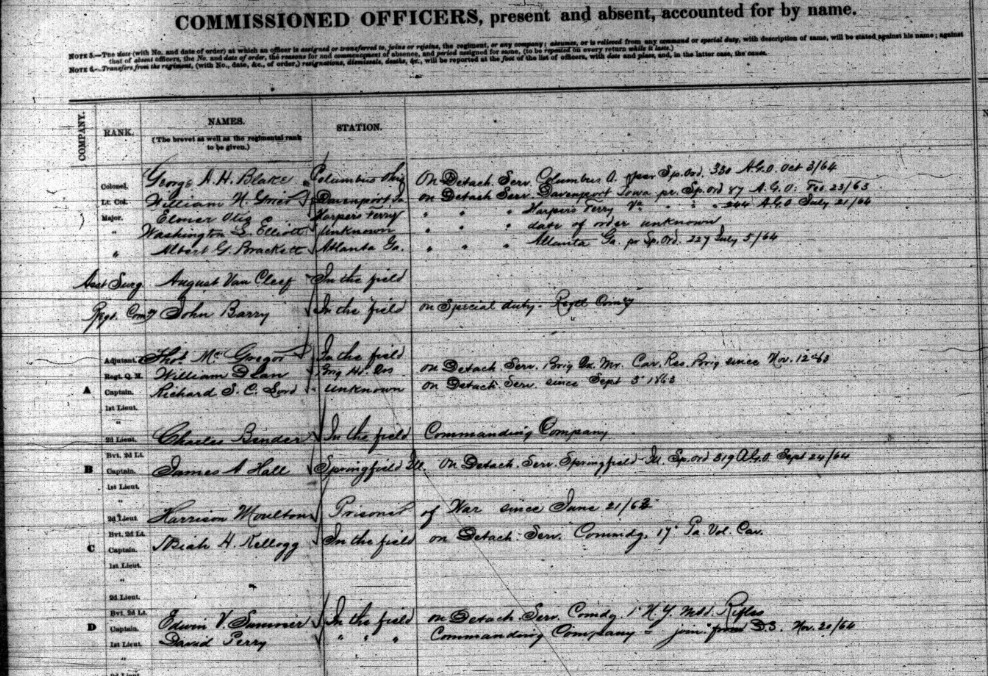 COMMISSIONED OFFICERS, present and absent, accounted for by name.
NOTE 5.—The date (with No. and date of order) at which an officer is assigned or transferred to, joins or rejoins, the regiment, or any command or special duty, with description of same, will be stated against his name; against
that of absent officers, the No. and date of order, the reasons for and commencement of absence, and period assigned for same, (to be repeated on every return while it lasts.)
NOTE 6.—Transfers from the regiment, (with No., date, &c., of order,) resignations, dismissals, deaths, &c., will be reported at the foot of the list of officers, with date and place, and, in the latter case, the cause.
COMPANY. RANK. NAMES. STATION.
(The brevet as well as the regimental rank
to be given.)
Colonel. George A. H. Blake Columbus Ohio On Detach. Serv. Columbus O. per Sp. Ord. 330 A.G.O. Oct 3/64
Lt. Col. William N. Grier Davenport Ia on Detach Serv. Davenport Iowa pr. Sp. Ord 87 A.G.O. Feb 23/63
Major. Elmer Otis Harpers Ferry " " " Harpers Ferry Va " " 244 A.G.O July 21/64
" Washington L. Elliott Unknown " " " date of order unknown
" Albert G. Brackett Atlanta Ga. " " " Atlanta Ga. pr Sp. Ord. 227 July 5/64
Asst Surg. August Van Cleef In the field
Regt. Com'y John Barry In the field on Special duty - Regtl Com'y
Adjutant. Thos. McGregor In the field
Regt. Q. M. William Dean Brig Hd. Qrs on Detach. Serv. Brig Qr. Mr. Cav. Res. Brig since Nov. 12" 63
A Captain. Richard S. C. Lord Unknown on Detach Serv. since Sept 5" 1863
1st Lieut.
"
2d Lieut. Charles Bender In the field Commanding Company
Bvt. 2d Lt.
B Captain. James A Hall Springfield Ill. On Detach. Serv. Springfield Ill. Sp. Ord 319 A.G.O. Sept 24/64
1st Lieut.
"
2d Lieut. Harrison Moulton Prisoner of War since June 21/63
Bvt. 2d Lt.
C Captain. Josiah H. Kellogg In the field on Detach. Serv. Commdg. 17" Pa. Vol. Cav.
1st Lieut.
"
2d Lieut.
Bvt. 2d Lt.
D Captain. Edwin V. Sumner In the field on Detach. Serv. Comdg. 1" N.Y. Mtd. Rifles
1st Lieut. David Perry " " " Commanding Company - join from D.S. Nov. 20/64
"
2d Lieut.